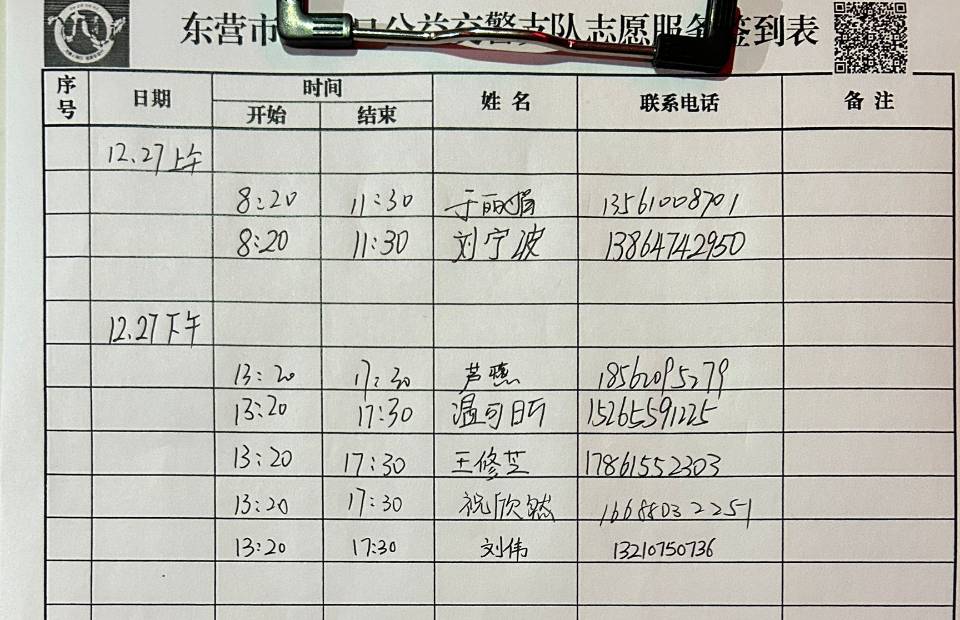 东营市 公益交警支队志愿服务签到表
序号 日期 时间 姓名 联系电话 备注
开始 结束
12.27上午
8:20 11:30 于丽娟 13561008701
8:20 11:30 刘宁波 13864742950
12.27下午
13:20 17:30 芦 18562095279
13:20 17:30 温可昕 15265591225
13:20 17:30 王修芝 17861552303
13:20 17:30 祝欣然 16688032251
13:20 17:30 刘伟 13210750736